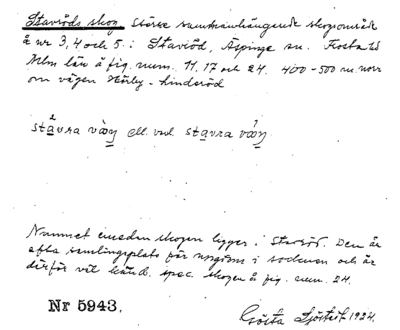 Staviöds skog Större sammanhängande skogsområde
å nr 3, 4 och 5 i Staviöd, Äspinge sn. Frosta hd
Mlm län å fig. num. 11, 17 och 24. 400-500 m. norr
om vägen Hörby - Linderöd
ell. vid
Namnet emedan skogen ligger i Staviöd. Den är
ofta samlingsplats för ungdom i socknen och är
därför väl känd. spec. skogen å fig. num. 24.
Nr 5943.
Gösta Sjöstedt 1924.